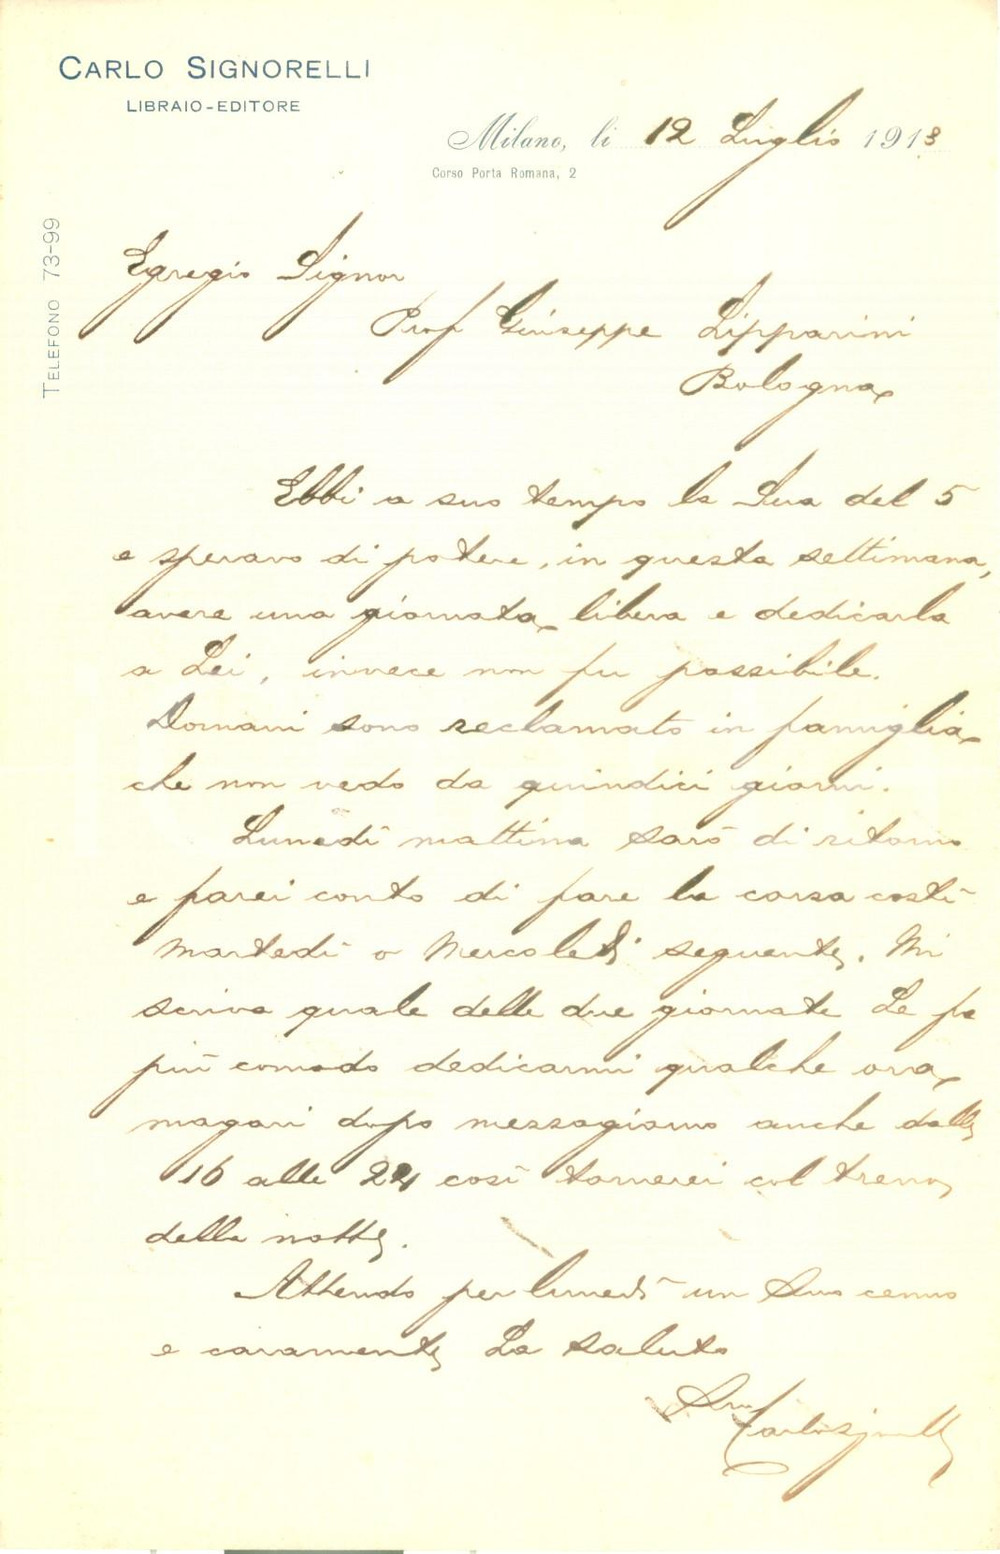 CARLO SIGNORELLI
LIBRAIO-EDITORE
Milano, li 12 Luglio 1913
Corso Porta Romana, 2
TELEFONO 73-99
Egregio Signor
Prof Giuseppe Lipparini
Bologna
Ebbi a suo tempo la Sua del 5
e speravo di potere, in questa settimana,
avere una giornata libera e dedicarla
a Lei, invece non fu possibile.
Domani sono reclamato in famiglia
che non vedo da quindici giorni.
Lunedì mattina sarò di ritorno
e farei conto di fare la corsa costì
martedì o Mercoledì seguente. Mi
scriva quale delle due giornate Le fa
più comodo dedicarmi qualche ora
magari dopo mezzogiorno anche dalle
16 alle 24 così tornerei col treno
della notte.
Attendo per lunedì un Suo cenno
e caramente La saluto
Suo Carlo Signorelli